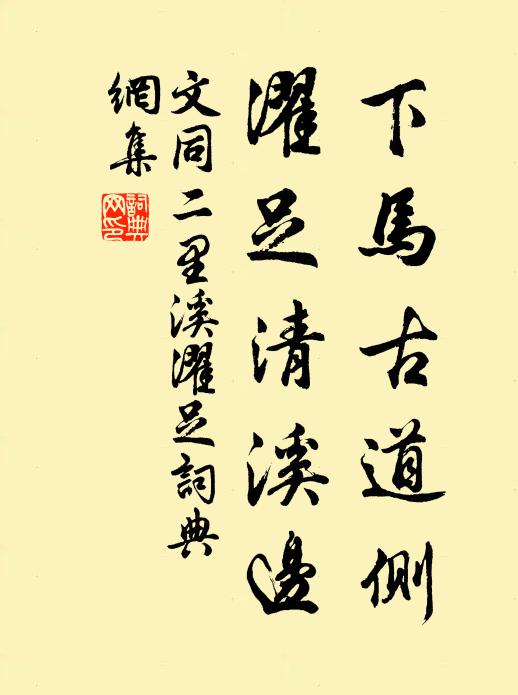 下馬古道側
濯足清溪邊
文同二里溪濯足詞典
網集
詞典網印